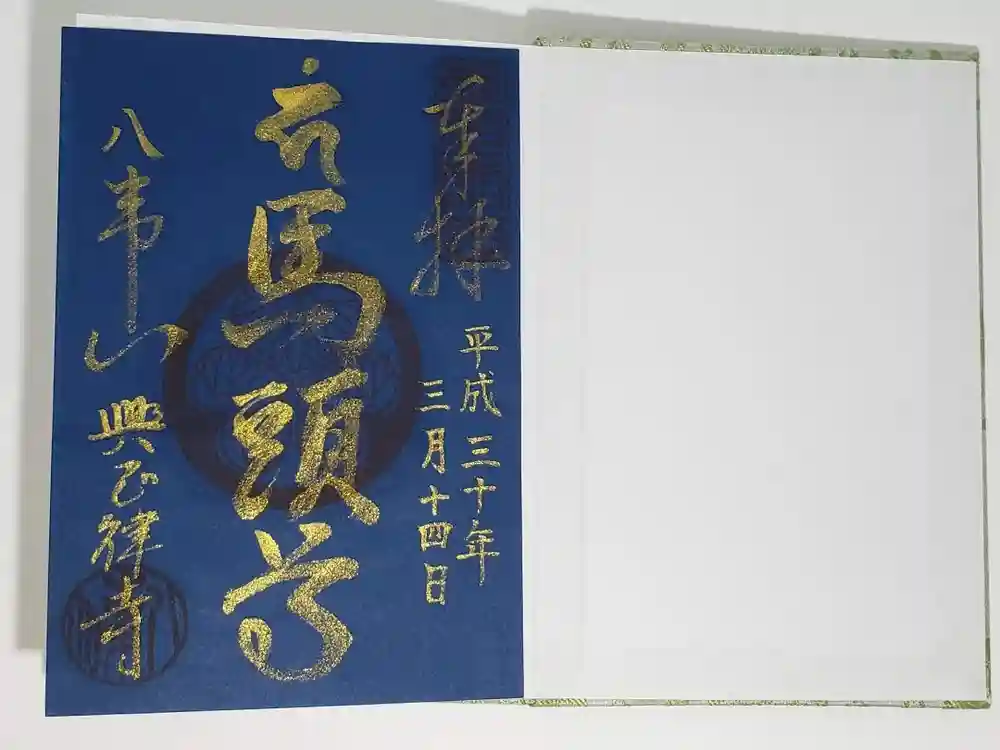 奉拝
平成三十年
三月十四日
馬頭尊
八事山 興正律寺